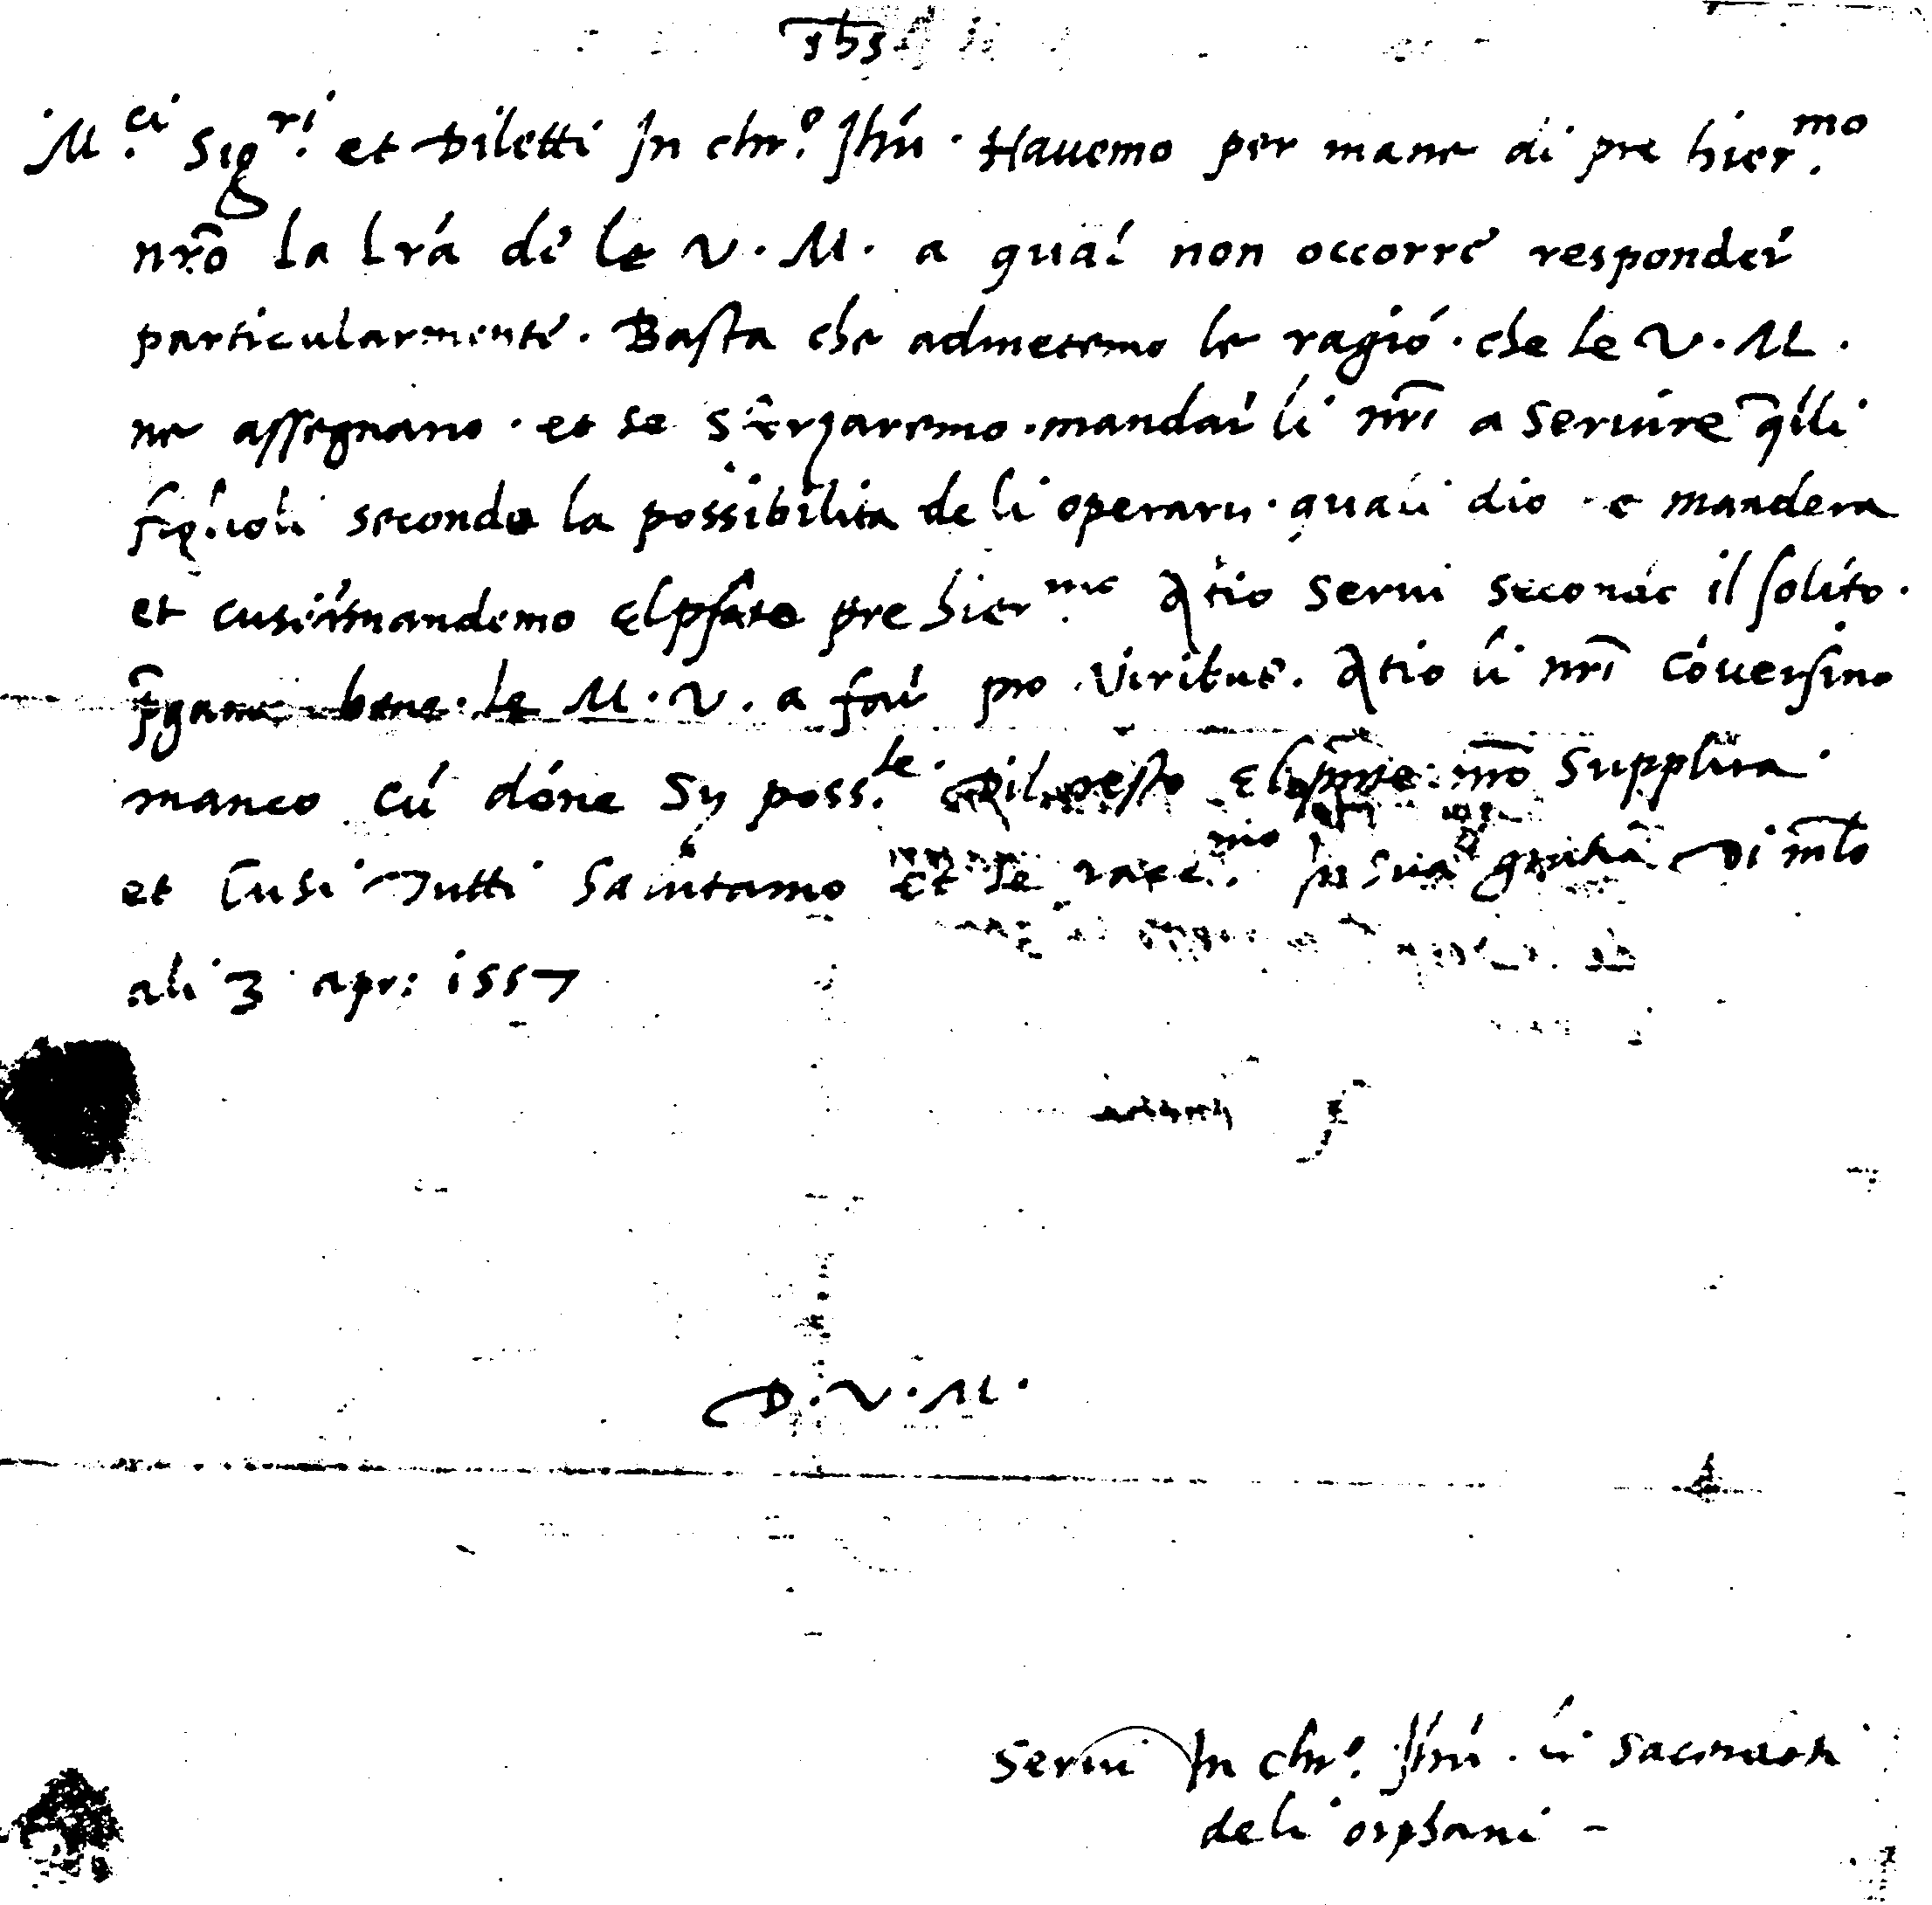 yhs
M.ci Sig.ri et Diletti Jn chr.o Jhú. Havemo per mane di pre hier.mo
nrõ la lrá de le V. M. a qual non occorre responder
particularmente. Basta che admetemo le ragió. che le V. M.
ne assegnano. et se sforzaremo. mandar li nrĩ a servire q̃lli
figlioli secondo la possibilita de li operarii. quali dio ce mandera
et cusi rimandemo el pre hier.mo Atio servi secondo il solito.
bene. le M. V. a far pro viribus. Atio li nrĩ cóversino
manco cú dóne sy poss.le. Dil resto el nrõ supplira.
et cusi Tutti salutamo et se racc.mo Jn sua gratia Di mlo
ali 3 apr: 1557
D. V. M.
Servi Jn chr.o Jhú. li sacerdoti
de li orphani -